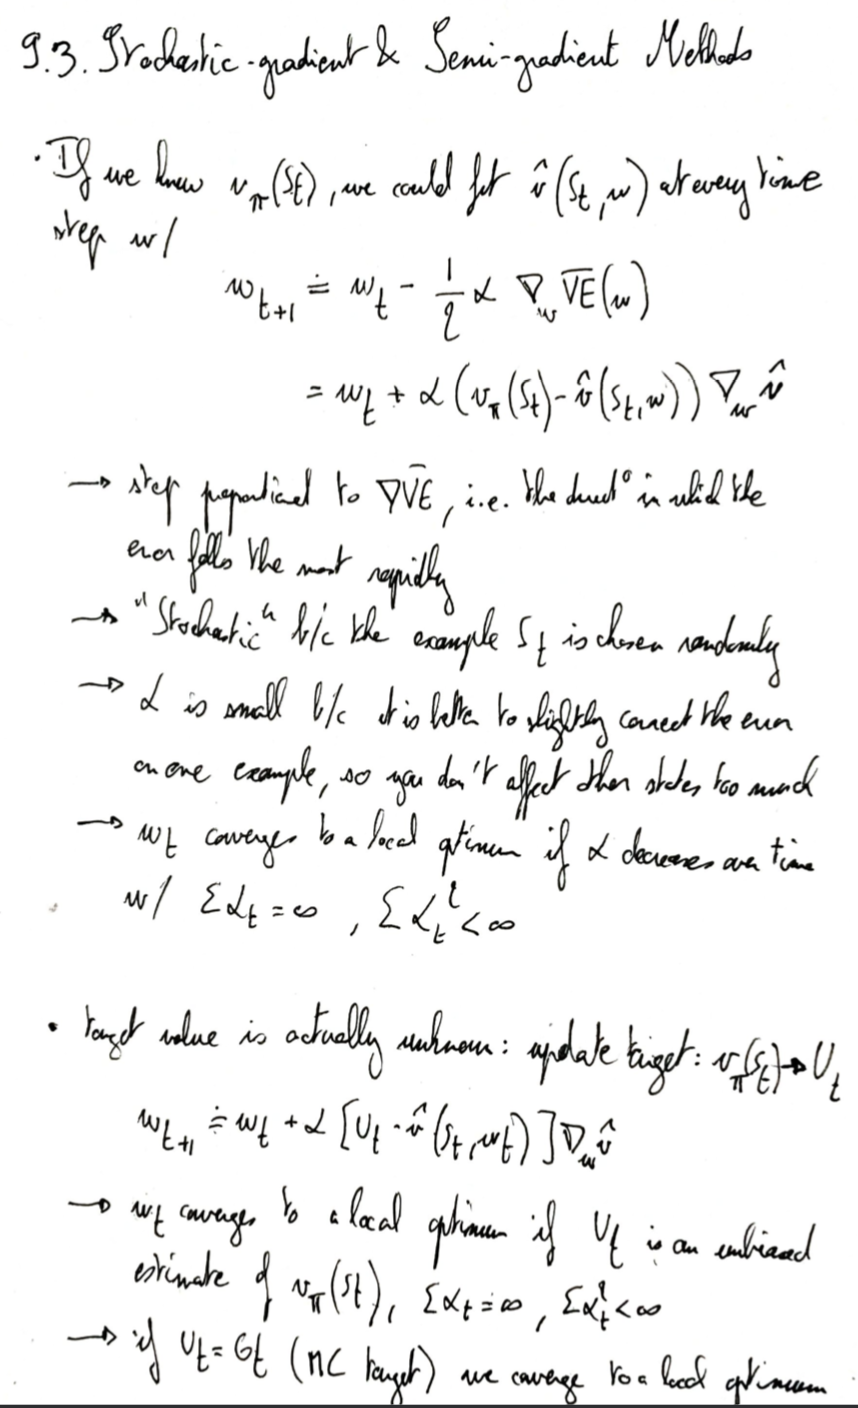 9.3. Stochastic-gradient & Semi-gradient Methods
· If we knew v_π(S_t), we could fit v̂(S_t, w) at every time
step w/
w_{t+1} ≐ w_t - 1/2 α ∇_w V̅E̅(w)
= w_t + α (v_π(S_t) - v̂(S_t, w)) ∇_w v̂
→ step proportional to ∇V̅E̅, i.e. the direct° in which the
error falls the most rapidly
→ "Stochastic" b/c the example S_t is chosen randomly
→ α is small b/c it is better to slightly correct the error
on one example, so you don't affect other states too much
→ w_t converges to a local optimum if α decreases over time
w/ Σα_t = ∞, Σα_t² < ∞
· target value is actually unknown: update target: v_π(S_t) → U_t
w_{t+1} ≐ w_t + α [U_t - v̂(S_t, w_t)] ∇_w v̂
→ w_t converges to a local optimum if U_t is an unbiased
estimate of v_π(S_t), Σα_t = ∞, Σα_t² < ∞
→ if U_t = G_t (MC target) we converge to a local optimum